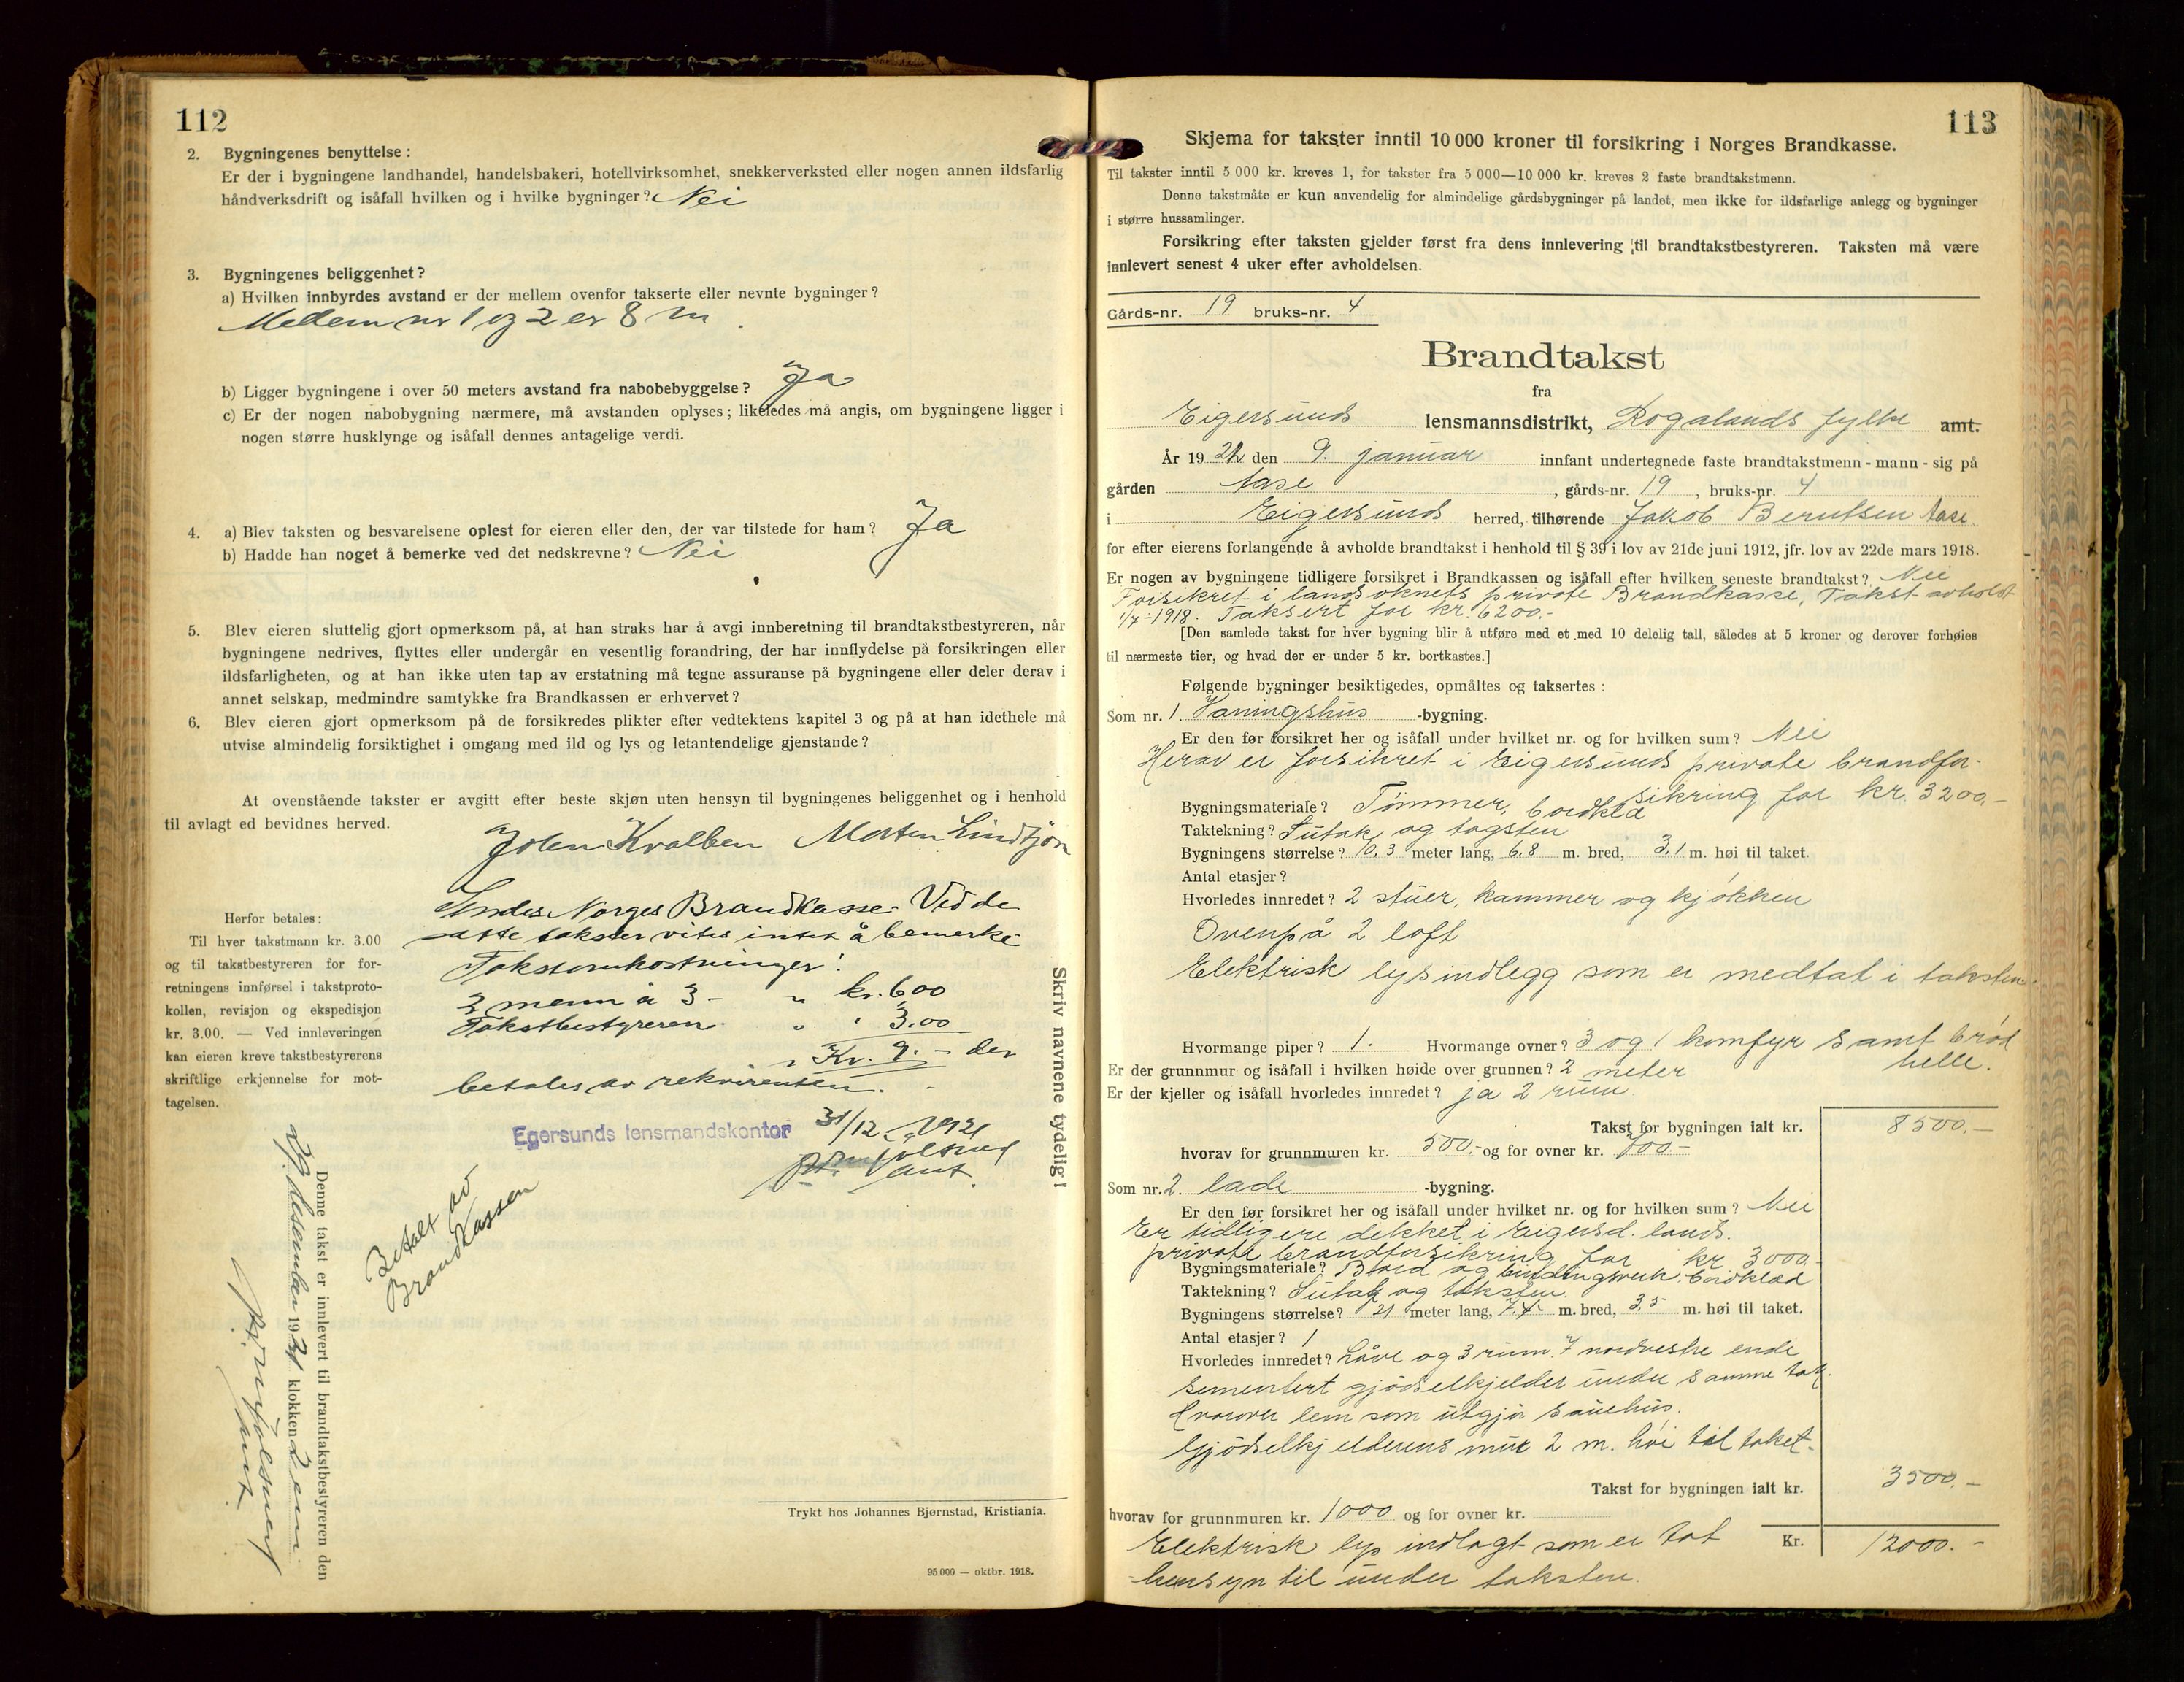 112
2. Bygningenes benyttelse:
Er der i bygningene landhandel, handelsbakeri, hotellvirksomhet, snekkerverksted eller nogen annen ildsfarlig
håndverksdrift og isåfall hvilken og i hvilke bygninger? Nei
3. Bygningenes beliggenhet?
a) Hvilken innbyrdes avstand er der mellem ovenfor takserte eller nevnte bygninger?
Mellem nr 1 og 2 er 8 m.
b) Ligger bygningene i over 50 meters avstand fra nabobebyggelse? Ja
c) Er der nogen nabobygning nærmere, må avstanden oplyses; likeledes må angis, om bygningene ligger i
nogen større husklynge og isåfall dennes antagelige verdi.
4. a) Blev taksten og besvarelsene oplest for eieren eller den, der var tilstede for ham? Ja
b) Hadde han noget å bemerke ved det nedskrevne? Nei
5. Blev eieren sluttelig gjort opmerksom på, at han straks har å avgi innberetning til brandtakstbestyreren, når
bygningene nedrives, flyttes eller undergår en vesentlig forandring, der har innflydelse på forsikringen eller
ildsfarligheten, og at han ikke uten tap av erstatning må tegne assuranse på bygningene eller deler derav i
annet selskap, medmindre samtykke fra Brandkassen er erhvervet?
6. Blev eieren gjort opmerksom på de forsikredes plikter efter vedtektens kapitel 3 og på at han idethele må
utvise almindelig forsiktighet i omgang med ild og lys og letantendelige gjenstande?
At ovenstående takster er avgitt efter beste skjøn uten hensyn til bygningenes beliggenhet og i henhold
til avlagt ed bevidnes herved.
Morten Lindtjørn
Herfor betales:
Til hver takstmann kr. 3.00
og til takstbestyreren for for-
retningens innførsel i takstproto-
kollen, revisjon og ekspedisjon
kr. 3.00. — Ved innleveringen
kan eieren kreve takstbestyrerens
skriftlige erkjennelse for mot-
tagelsen.
Sendes Norges Brandkasse. Ved de
satte takster vites intet å bemerke
Takstomkostninger:
2 menn à 3- " kr. 6,00
Takstbestyreren " " 3.00
" Kr. 9.- der
betales av rekvirenten.
Egersunds lensmandskontor 31/12 1921
Betalt av
Brandkassen
Skriv navnene tydelig!
Denne takst er innlevert til brandtakstbestyreren den
29 desember 1921 klokken 2 em
Trykt hos Johannes Bjørnstad, Kristiania.
95 000 — oktbr. 1918.
113
Skjema for takster inntil 10 000 kroner til forsikring i Norges Brandkasse.
Til takster inntil 5 000 kr. kreves 1, for takster fra 5 000—10 000 kr. kreves 2 faste brandtakstmenn.
Denne takstmåte er kun anvendelig for almindelige gårdsbygninger på landet, men ikke for ildsfarlige anlegg og bygninger
i større hussamlinger.
Forsikring efter taksten gjelder først fra dens innlevering til brandtakstbestyreren. Taksten må være
innlevert senest 4 uker efter avholdelsen.
Gårds-nr. 19 bruks-nr. 4
Brandtakst
fra
Eigersunds lensmannsdistrikt, Rogalands fylke amt.
År 19 den 9. januar innfant undertegnede faste brandtakstmenn - mann - sig på
gården Aase, gårds-nr. 19, bruks-nr. 4
i Eigersunds herred, tilhørende Jakob Berntsen Aase.
for efter eierens forlangende å avholde brandtakst i henhold til § 39 i lov av 21de juni 1912, jfr. lov av 22de mars 1918.
Er nogen av bygningene tidligere forsikret i Brandkassen og isåfall efter hvilken seneste brandtakst? Nei
Forsikret i landsoknets private Brandkasse, Takst avholdt
1/7-1918. Taksert for kr. 6200.-
[Den samlede takst for hver bygning blir å utføre med et med 10 delelig tall, således at 5 kroner og derover forhøies
til nærmeste tier, og hvad der er under 5 kr. bortkastes.]
Følgende bygninger besiktigedes, opmåltes og taksertes:
Som nr. 1. Vaningshus -bygning.
Er den før forsikret her og isåfall under hvilket nr. og for hvilken sum? Nei
Herav er forsikret i Eigersunds private brandfor-
sikring for kr. 3200.-
Bygningsmateriale? Tømmer, bordklæ
Taktekning? Sutak og tagsten
Bygningens størrelse? 10,3 meter lang, 6,8 m. bred, 3,1 m. høi til taket.
Antal etasjer?
Hvorledes innredet? 2 stuer, kammer og kjøkken
Ovenpå 2 loft
Elektrisk lysindlegg som er medtat i taksten.
Hvormange piper? 1. Hvormange ovner? 3 og 1 komfyr samt brød
helle.
Er der grunnmur og isåfall i hvilken høide over grunnen? 2 meter
Er der kjeller og isåfall hvorledes innredet? ja 2 rum.
Takst for bygningen ialt kr. 8500.-
hvorav for grunnmuren kr. 500.- og for ovner kr. 700.-
Som nr. 2. lade -bygning.
Er den før forsikret her og isåfall under hvilket nr. og for hvilken sum? Nei
Er tidligere dekket i Eigersd. lands.
private brandforsikring for kr 3000.-
Bygningsmateriale? Bord og bindingsverk. bordklæd
Taktekning? Sutak og taksten.
Bygningens størrelse? 21 meter lang, 7.4 m. bred, 3.5 m. høi til taket.
Antal etasjer? 1
Hvorledes innredet? Låve og 3 rum. I nordvestre ende
sementert gjødselkjelder under samme tak.
Hvorover lem som utgjør sauehus.
Gjødselkjelderens mur 2 m. høi til taket.
Takst for bygningen ialt kr. 3500.-
hvorav for grunnmuren kr. 1000 og for ovner kr.
Kr. 12000.-
Elektrisk lys indlagt som er tat
hensyn til under taksten.